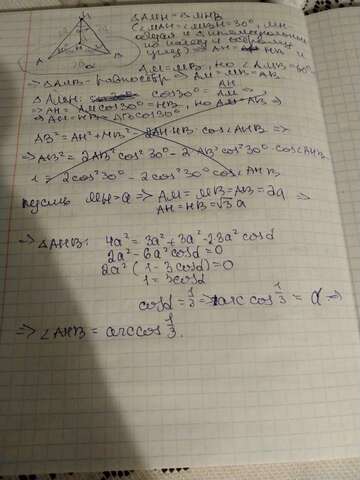 M
A
B
H
△AMH = △MHB
(∠MAH = ∠MBH = 30°, MH
общая и △ прямоугольные
по катету и острому
углу) => AH = HB и
AM = MB, но ∠AMB = 60°
=> △AMB - равностор => AM = MB = AB
△AMH: cos30° = AH/AM =>
=> AH = AM cos30° = HB, но AM = AB =>
=> AH = HB = AB cos30°
AB² = AH² + HB² - 2AH·HB·cos∠AHB =>
=> AB² = 2AB² cos²30° - 2AB² cos²30° · cos∠AHB
1 = 2cos²30° - 2cos²30° cos∠AHB
пусть MH = a => AM = MB = AB = 2a =>
AH = HB = √3 a
=> △AHB: 4a² = 3a² + 3a² - 2·3a² cosα
2a² - 6a² cosα = 0
2a² (1 - 3cosα) = 0
1 = 3cosα
cosα = 1/3 => arccos 1/3 = α =>
=> ∠AHB = arccos 1/3.